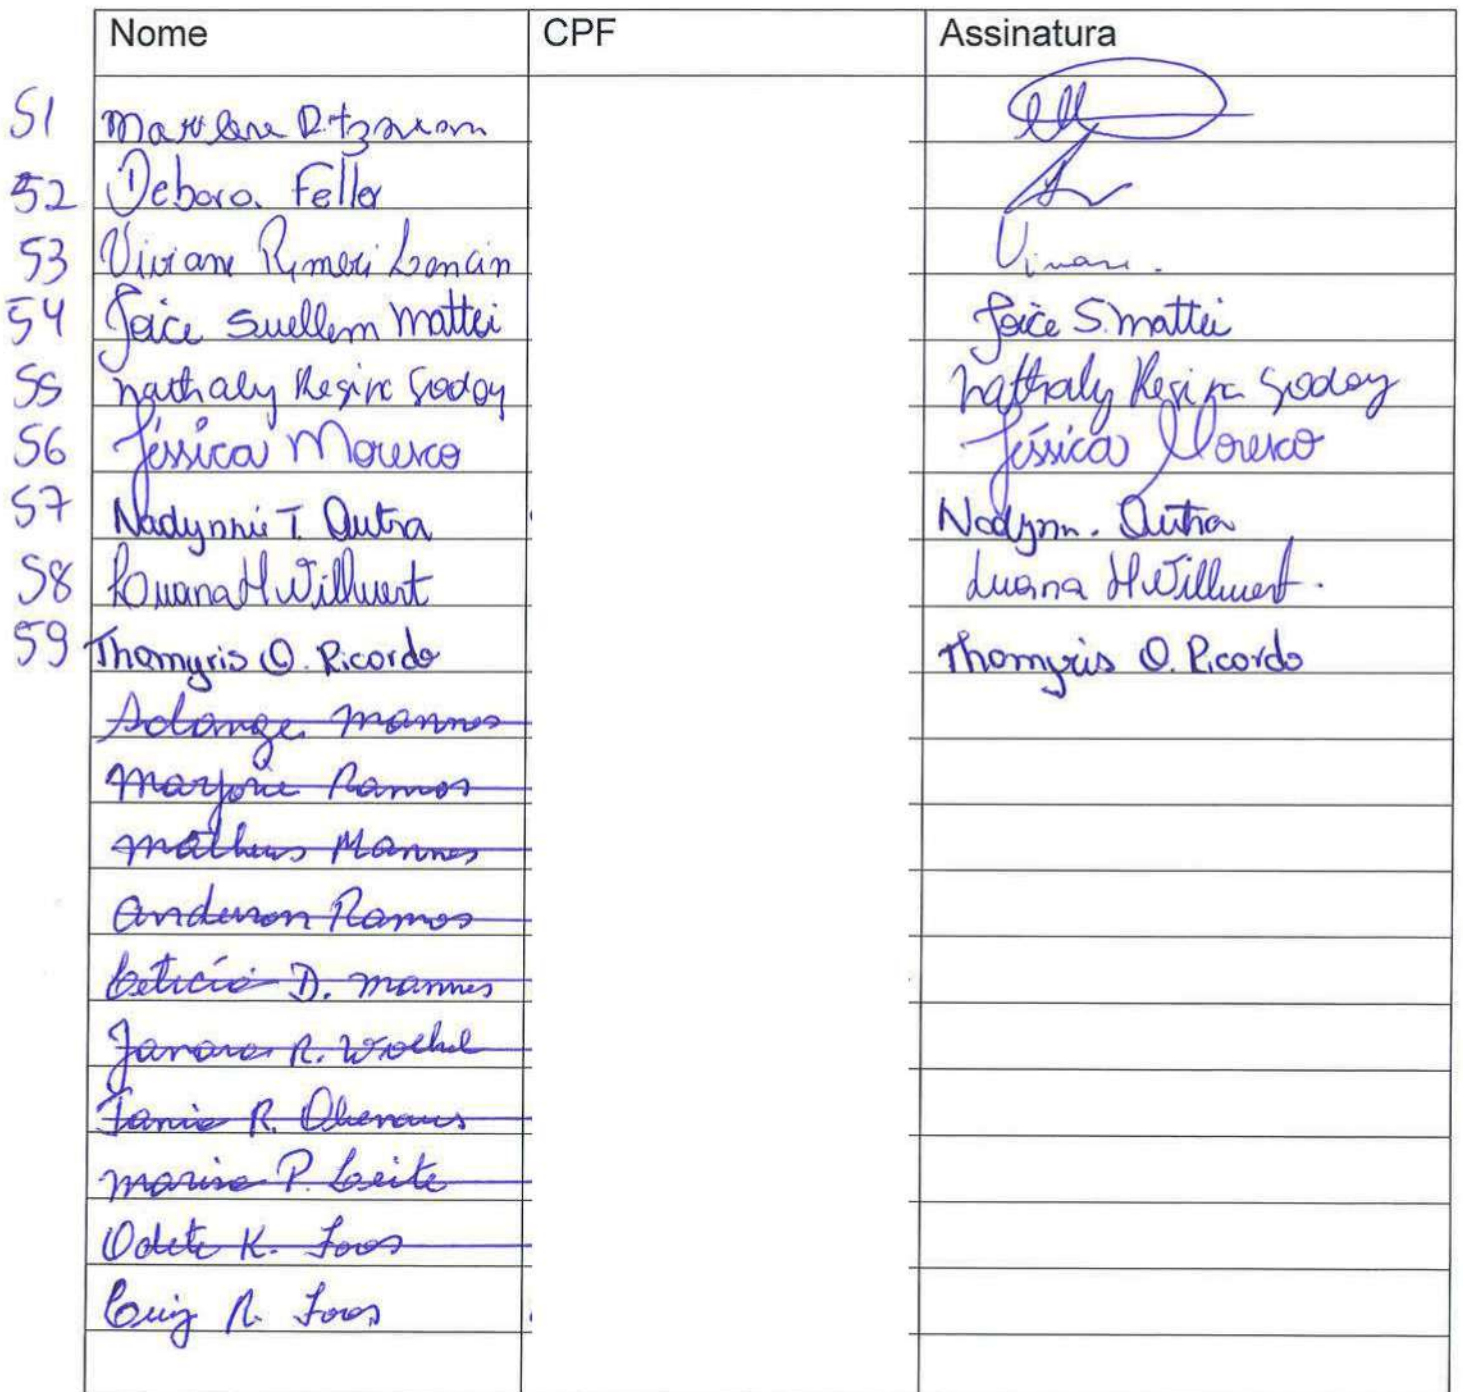 Nome CPF Assinatura
51 Marlene
52 Debora Feller
53 Viviane Rimeri Loncin Viviane.
54 Joice Suellem Mattei Joice S. Mattei
55 Nathaly Regina Godoy Nathaly Regina Godoy
56 Jéssica Moresco Jéssica Moresco
57 Nadynnie T. Dutra Nadynn. Dutra
58 Luana H Willwert Luana H Willwert.
59 Thamyris O. Ricardo Thamyris O. Ricardo
Solange Mannes
Marjorie Ramos
Matheus Mannes
Anderson Ramos
Leticia D. Mannes
Janara R. Woehl
Tania R. Obenaus
Marisa P. Leite
Odete K. Foos
Luiz R. Foos